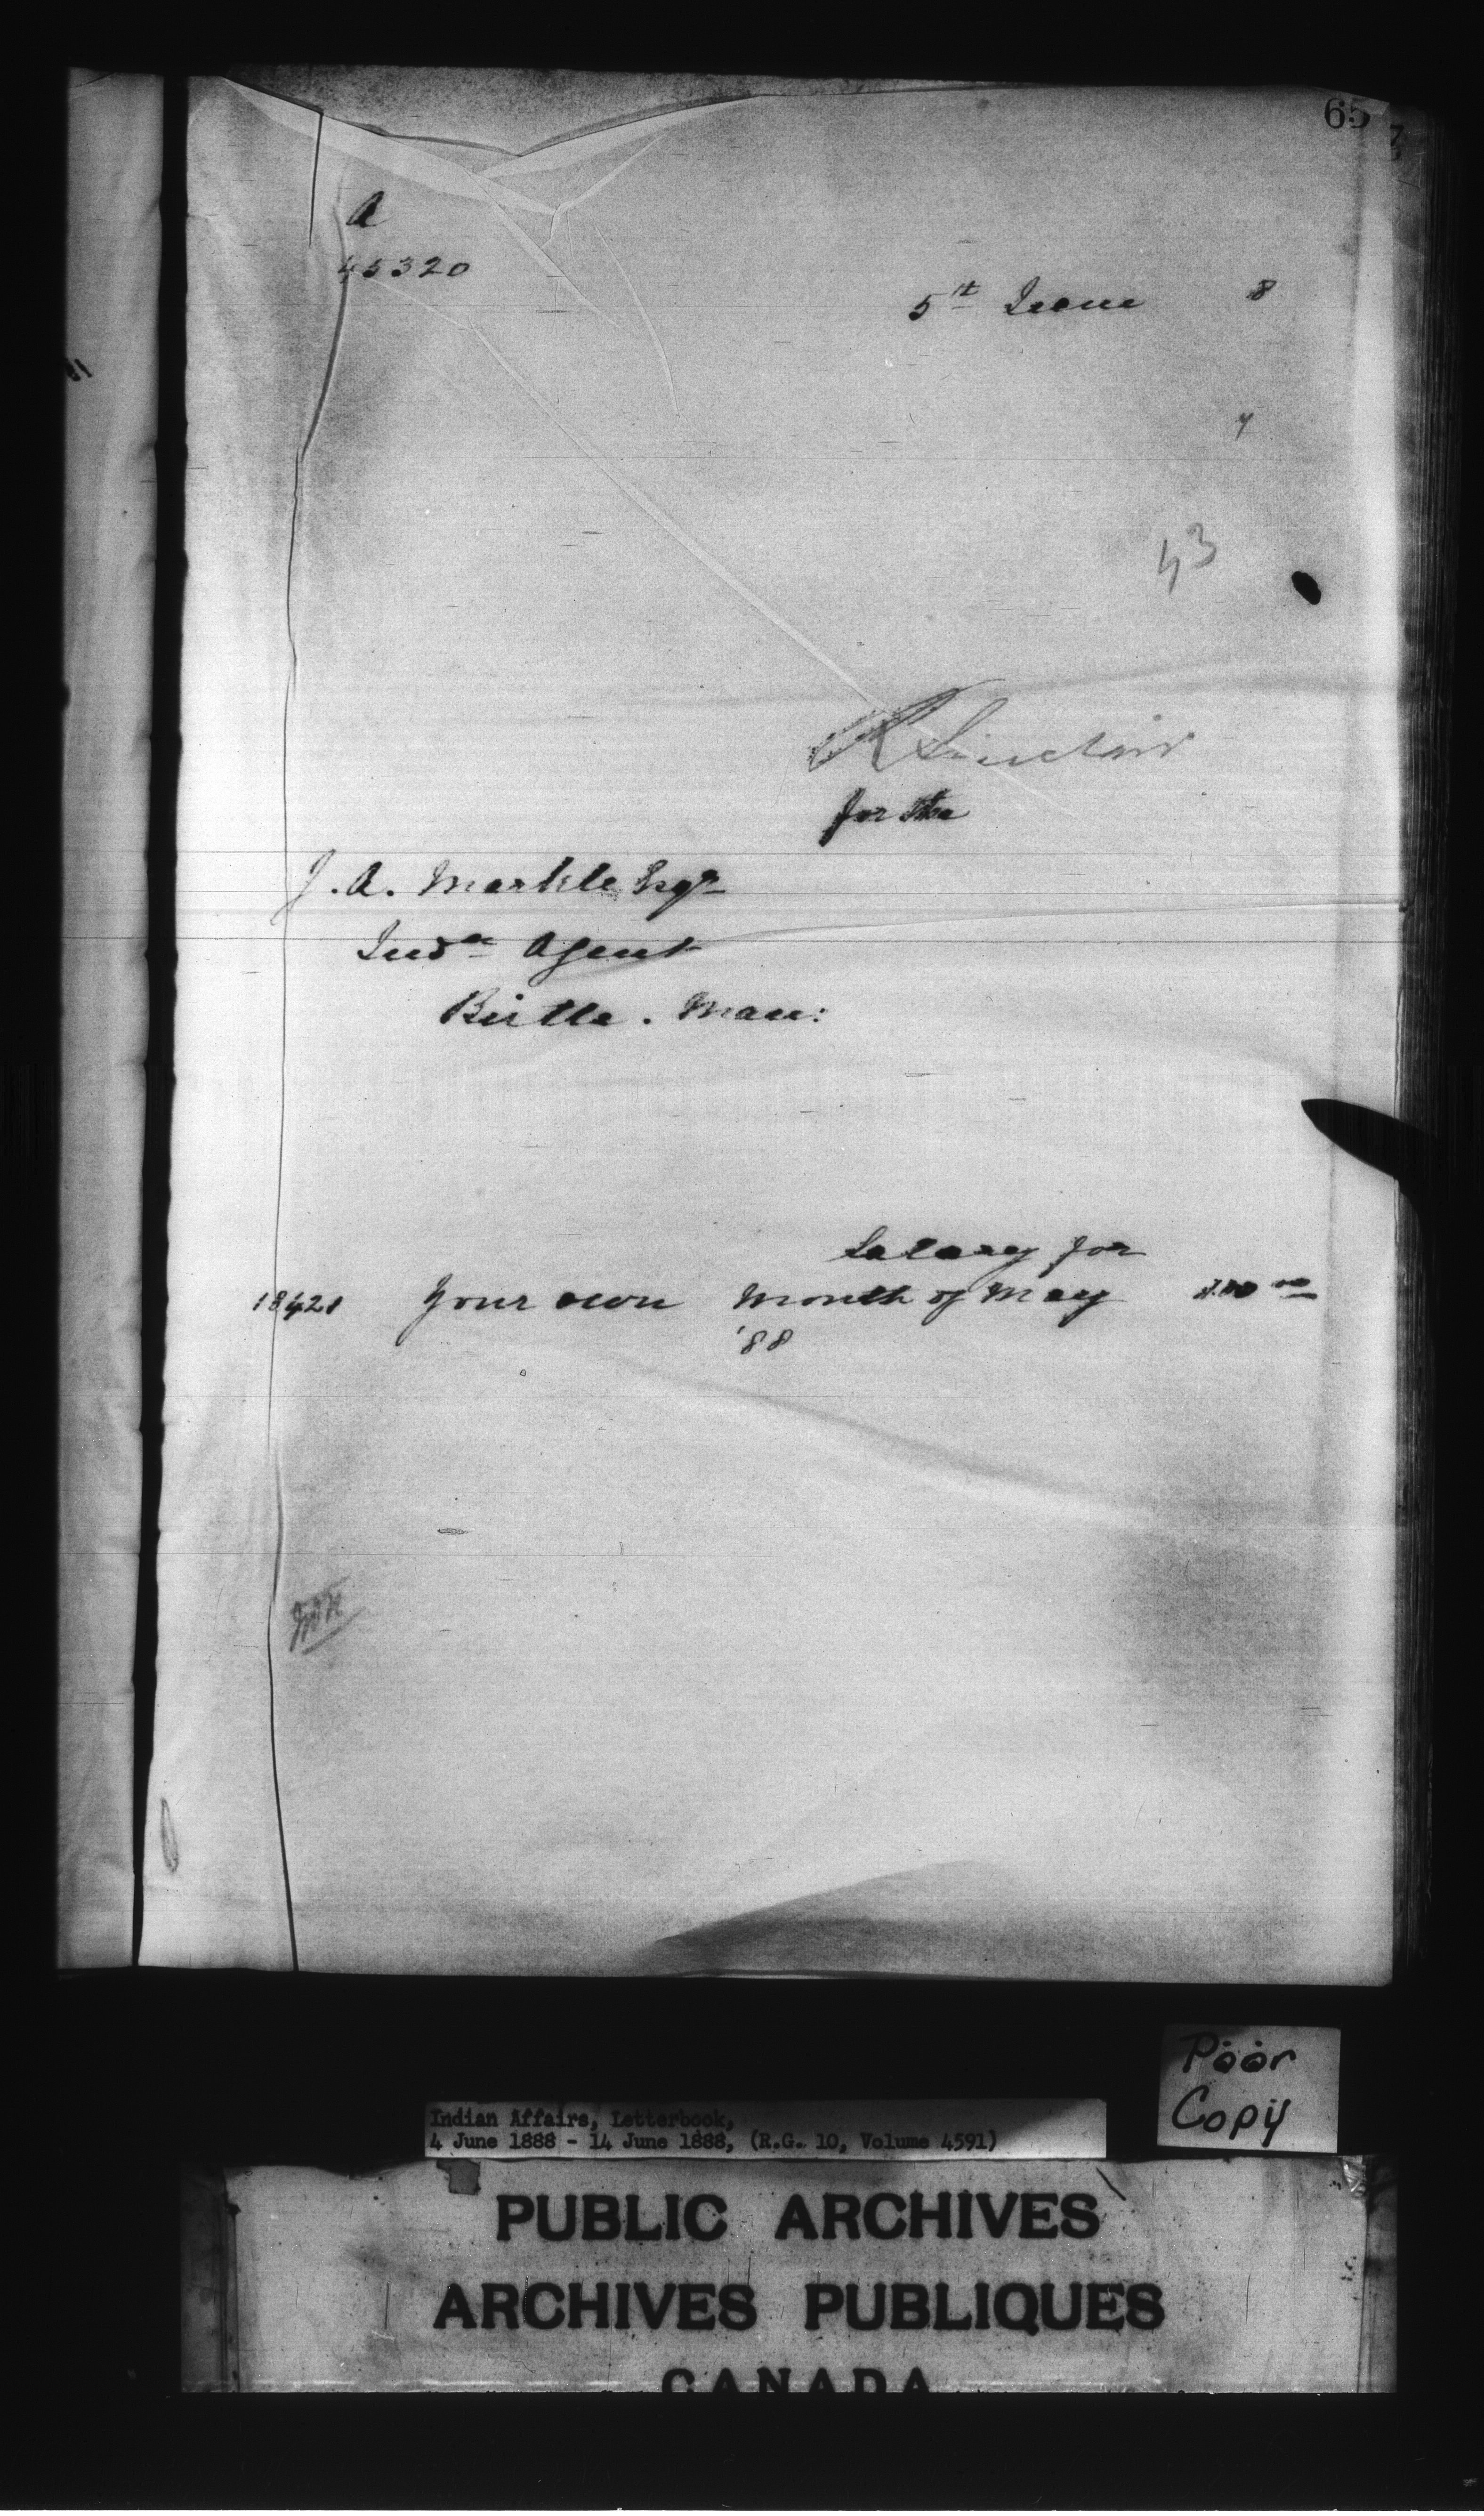 65
A
45320
5th June 8
43
R Sinclair
for the
J. A. Markle Esqr
Indn Agent
Birtle. Man:
Salary for
18421 Your own month of May
'88
Poor
Copy
Indian Affairs, Letterbook,
4 June 1888 - 14 June 1888, (R.G. 10, Volume 4591)
PUBLIC ARCHIVES
ARCHIVES PUBLIQUES
CANADA